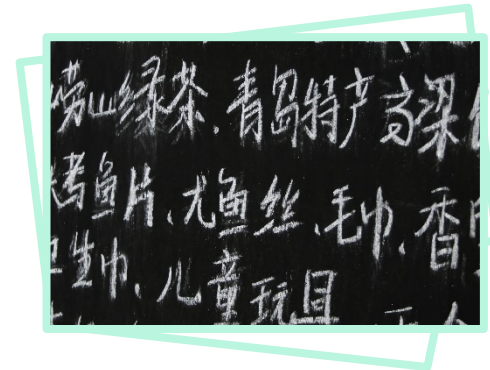 崂山绿茶.青岛特产高梁
烤鱼片、尤鱼丝、毛巾、香
卫生巾、儿童玩具